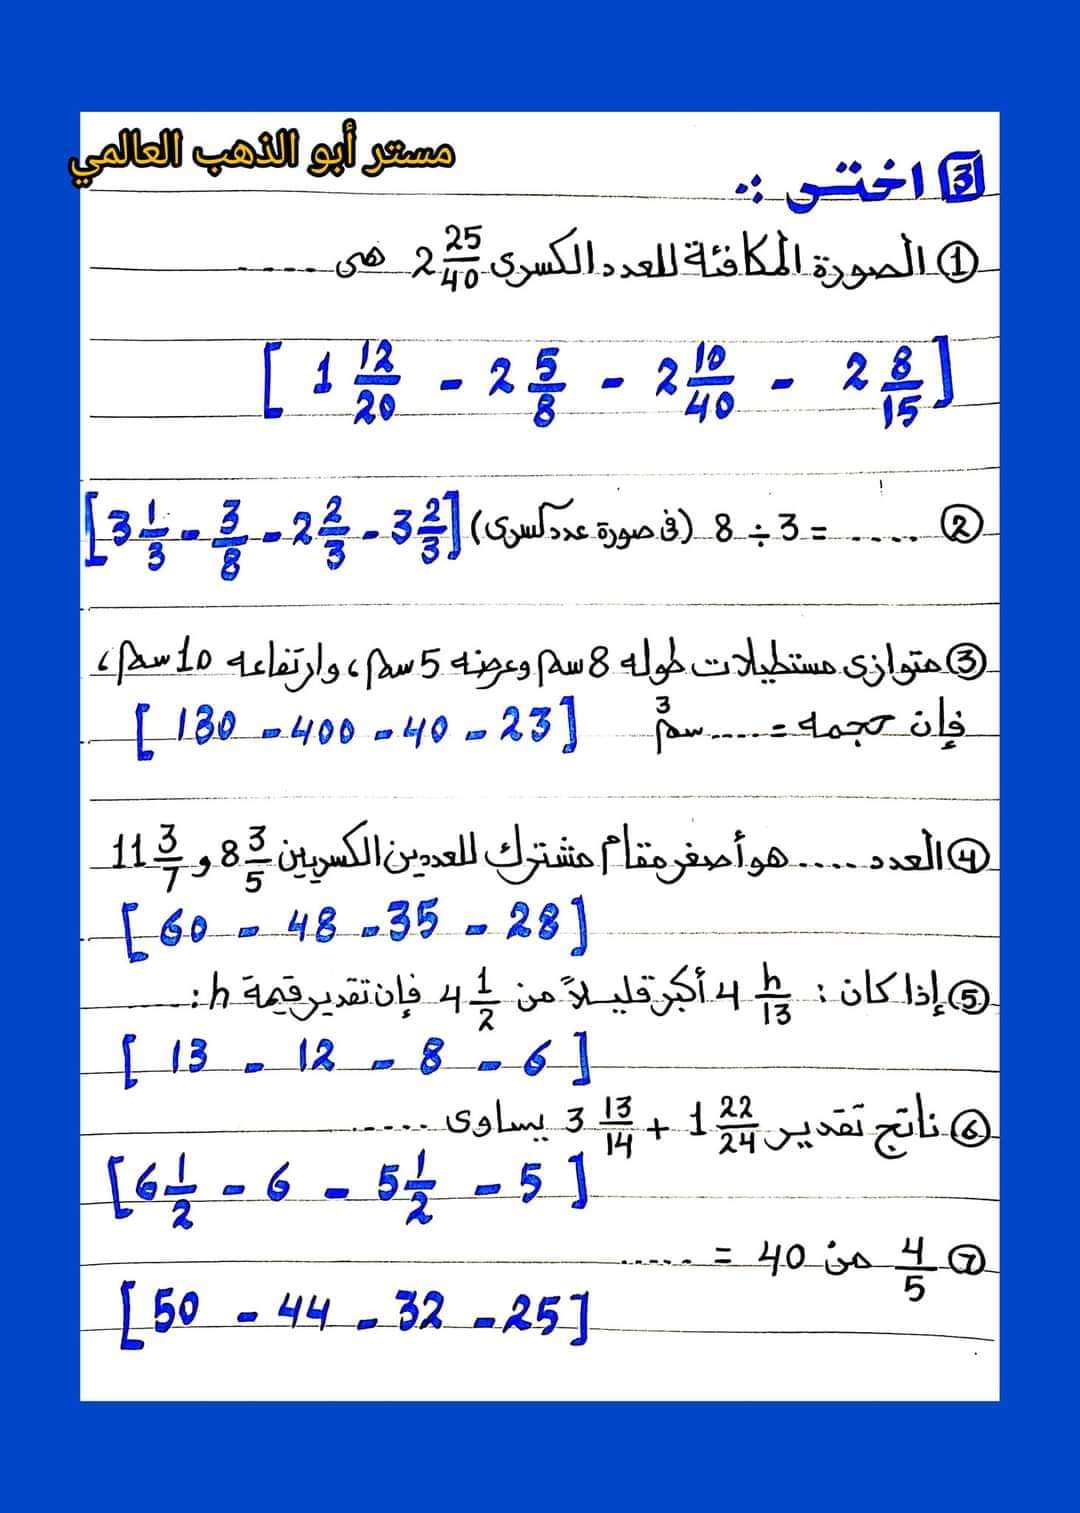 مستر أبو الذهب العالمي
3 اختر :-
① الصورة المكافئة للعدد الكسرى 2 25/40 هى .....
[ 1 12/20 - 2 5/8 - 2 10/40 - 2 8/15 ]
② ..... = 8 ÷ 3 (فى صورة عدد كسرى) [ 3 1/3 - 3/8 - 2 2/3 - 3 2/3 ]
③ متوازى مستطيلات طوله 8 سم وعرضه 5 سم، وارتفاعه 10 سم،
فإن حجمه = ..... سم3 [ 130 - 400 - 40 - 23 ]
④ العدد ..... هو أصغر مقام مشترك للعددين الكسريين 8 3/5 و 11 3/7
[ 60 - 48 - 35 - 28 ]
⑤ إذا كان : 4 h/13 أكبر قليلاً من 4 1/2 فإن تقدير قيمة h : .....
[ 13 - 12 - 8 - 6 ]
⑥ ناتج تقدير 1 22/24 + 3 13/14 يساوى .....
[ 6 1/2 - 6 - 5 1/2 - 5 ]
⑦ 4/5 من 40 = .....
[ 50 - 44 - 32 - 25 ]